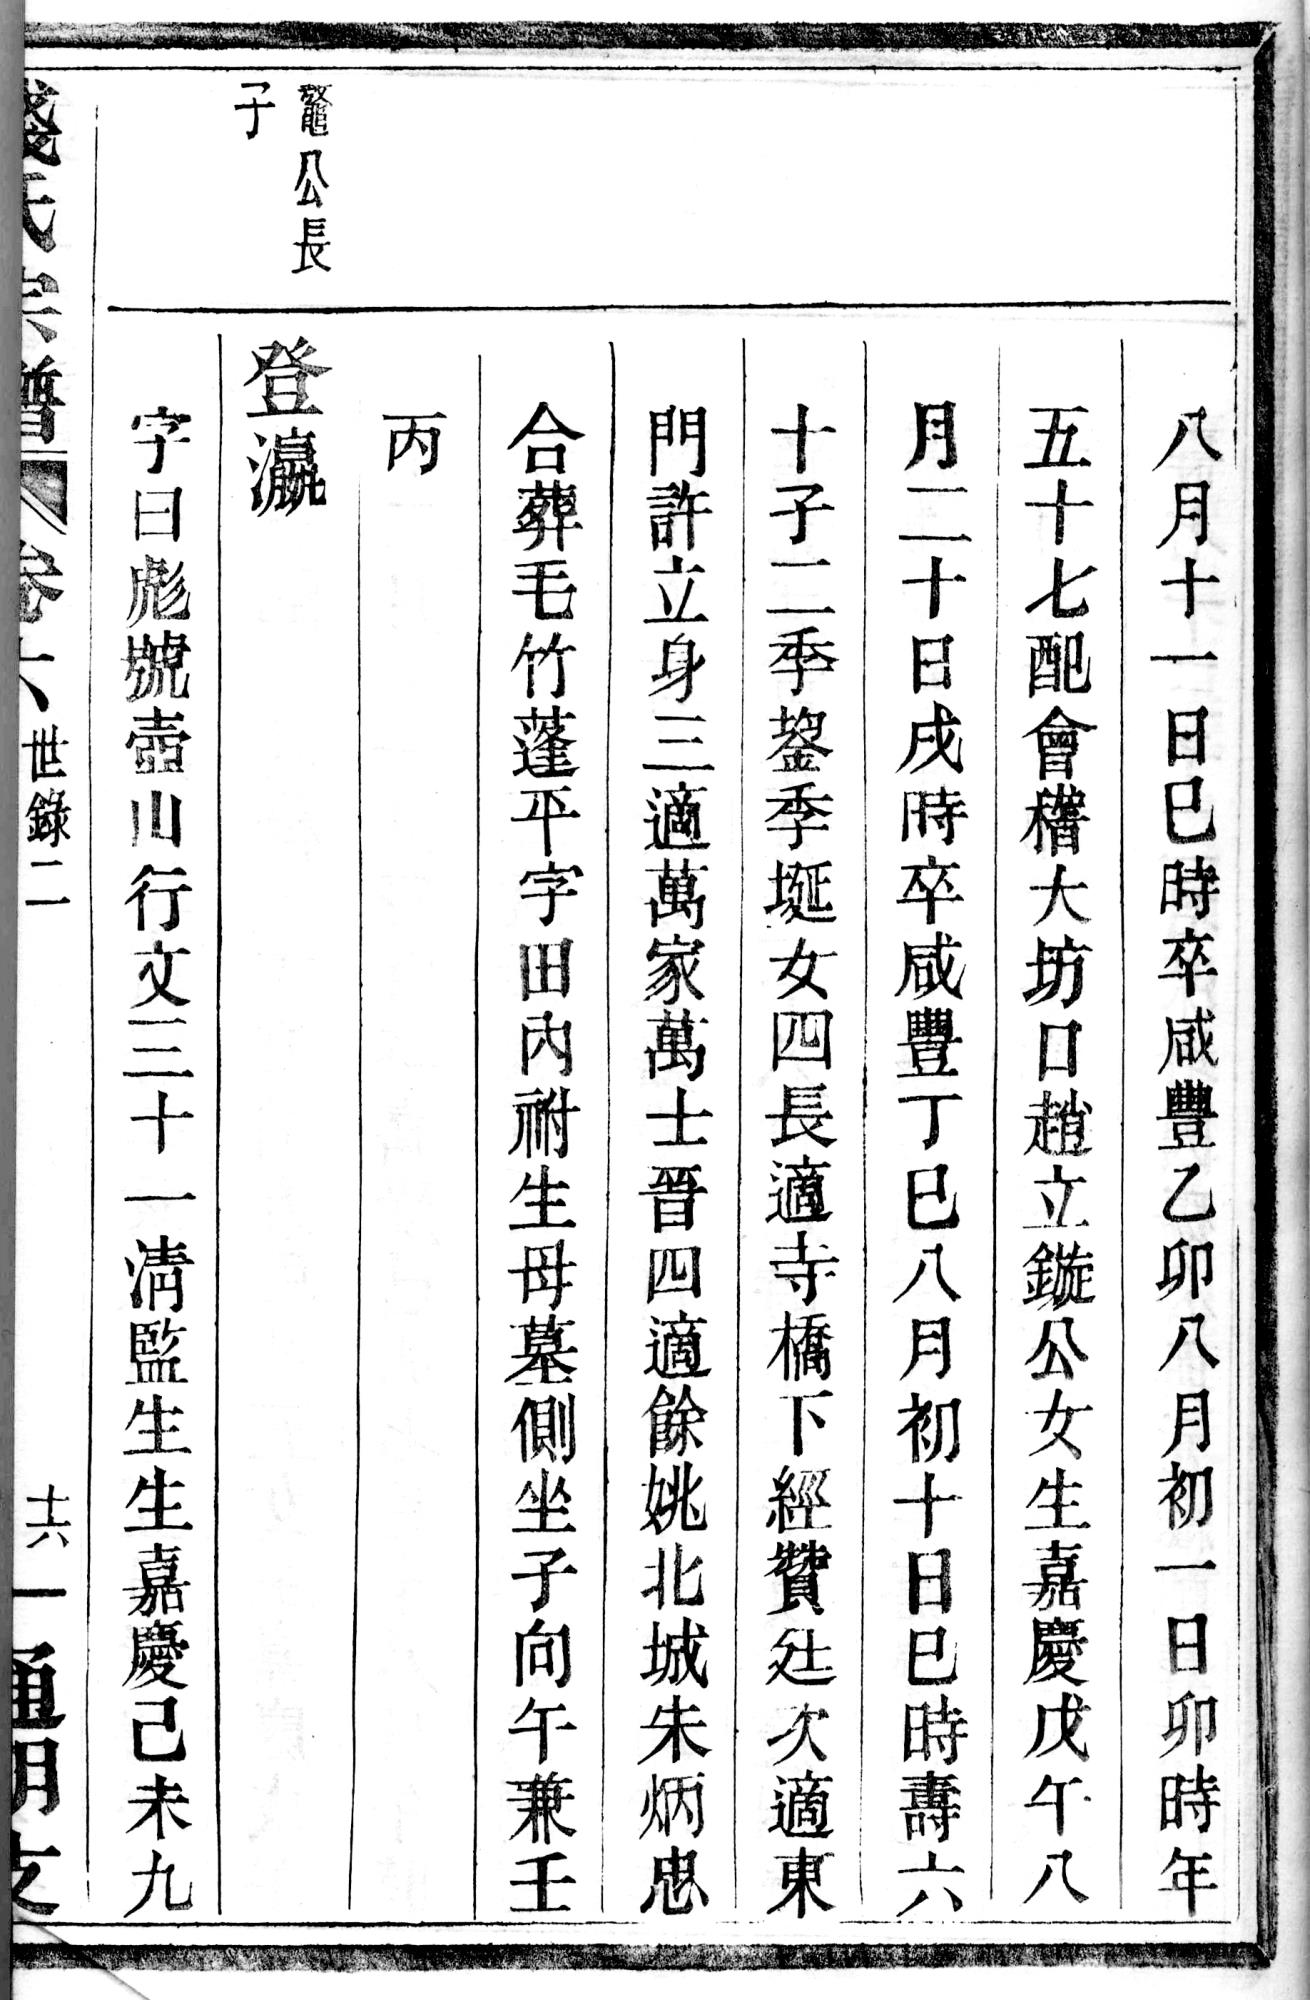 八月十一日巳時卒咸豐乙卯八月初一日卯時年
五十七配會稽大坊口趙立鏇公女生嘉慶戊午八
月二十日戌時卒咸豐丁巳八月初十日巳時壽六
十子二季鋆季埏女四長適寺橋下經贊廷次適東
門許立身三適萬家萬士晉四適餘姚北城朱炳忠
合葬毛竹蓬平字田內祔生母墓側坐子向午兼壬
丙
鼇公長
子
登瀛
字曰彪號壺山行文三十一清監生生嘉慶己未九
錢氏宗譜 卷六 世錄二 十六 一 通明支